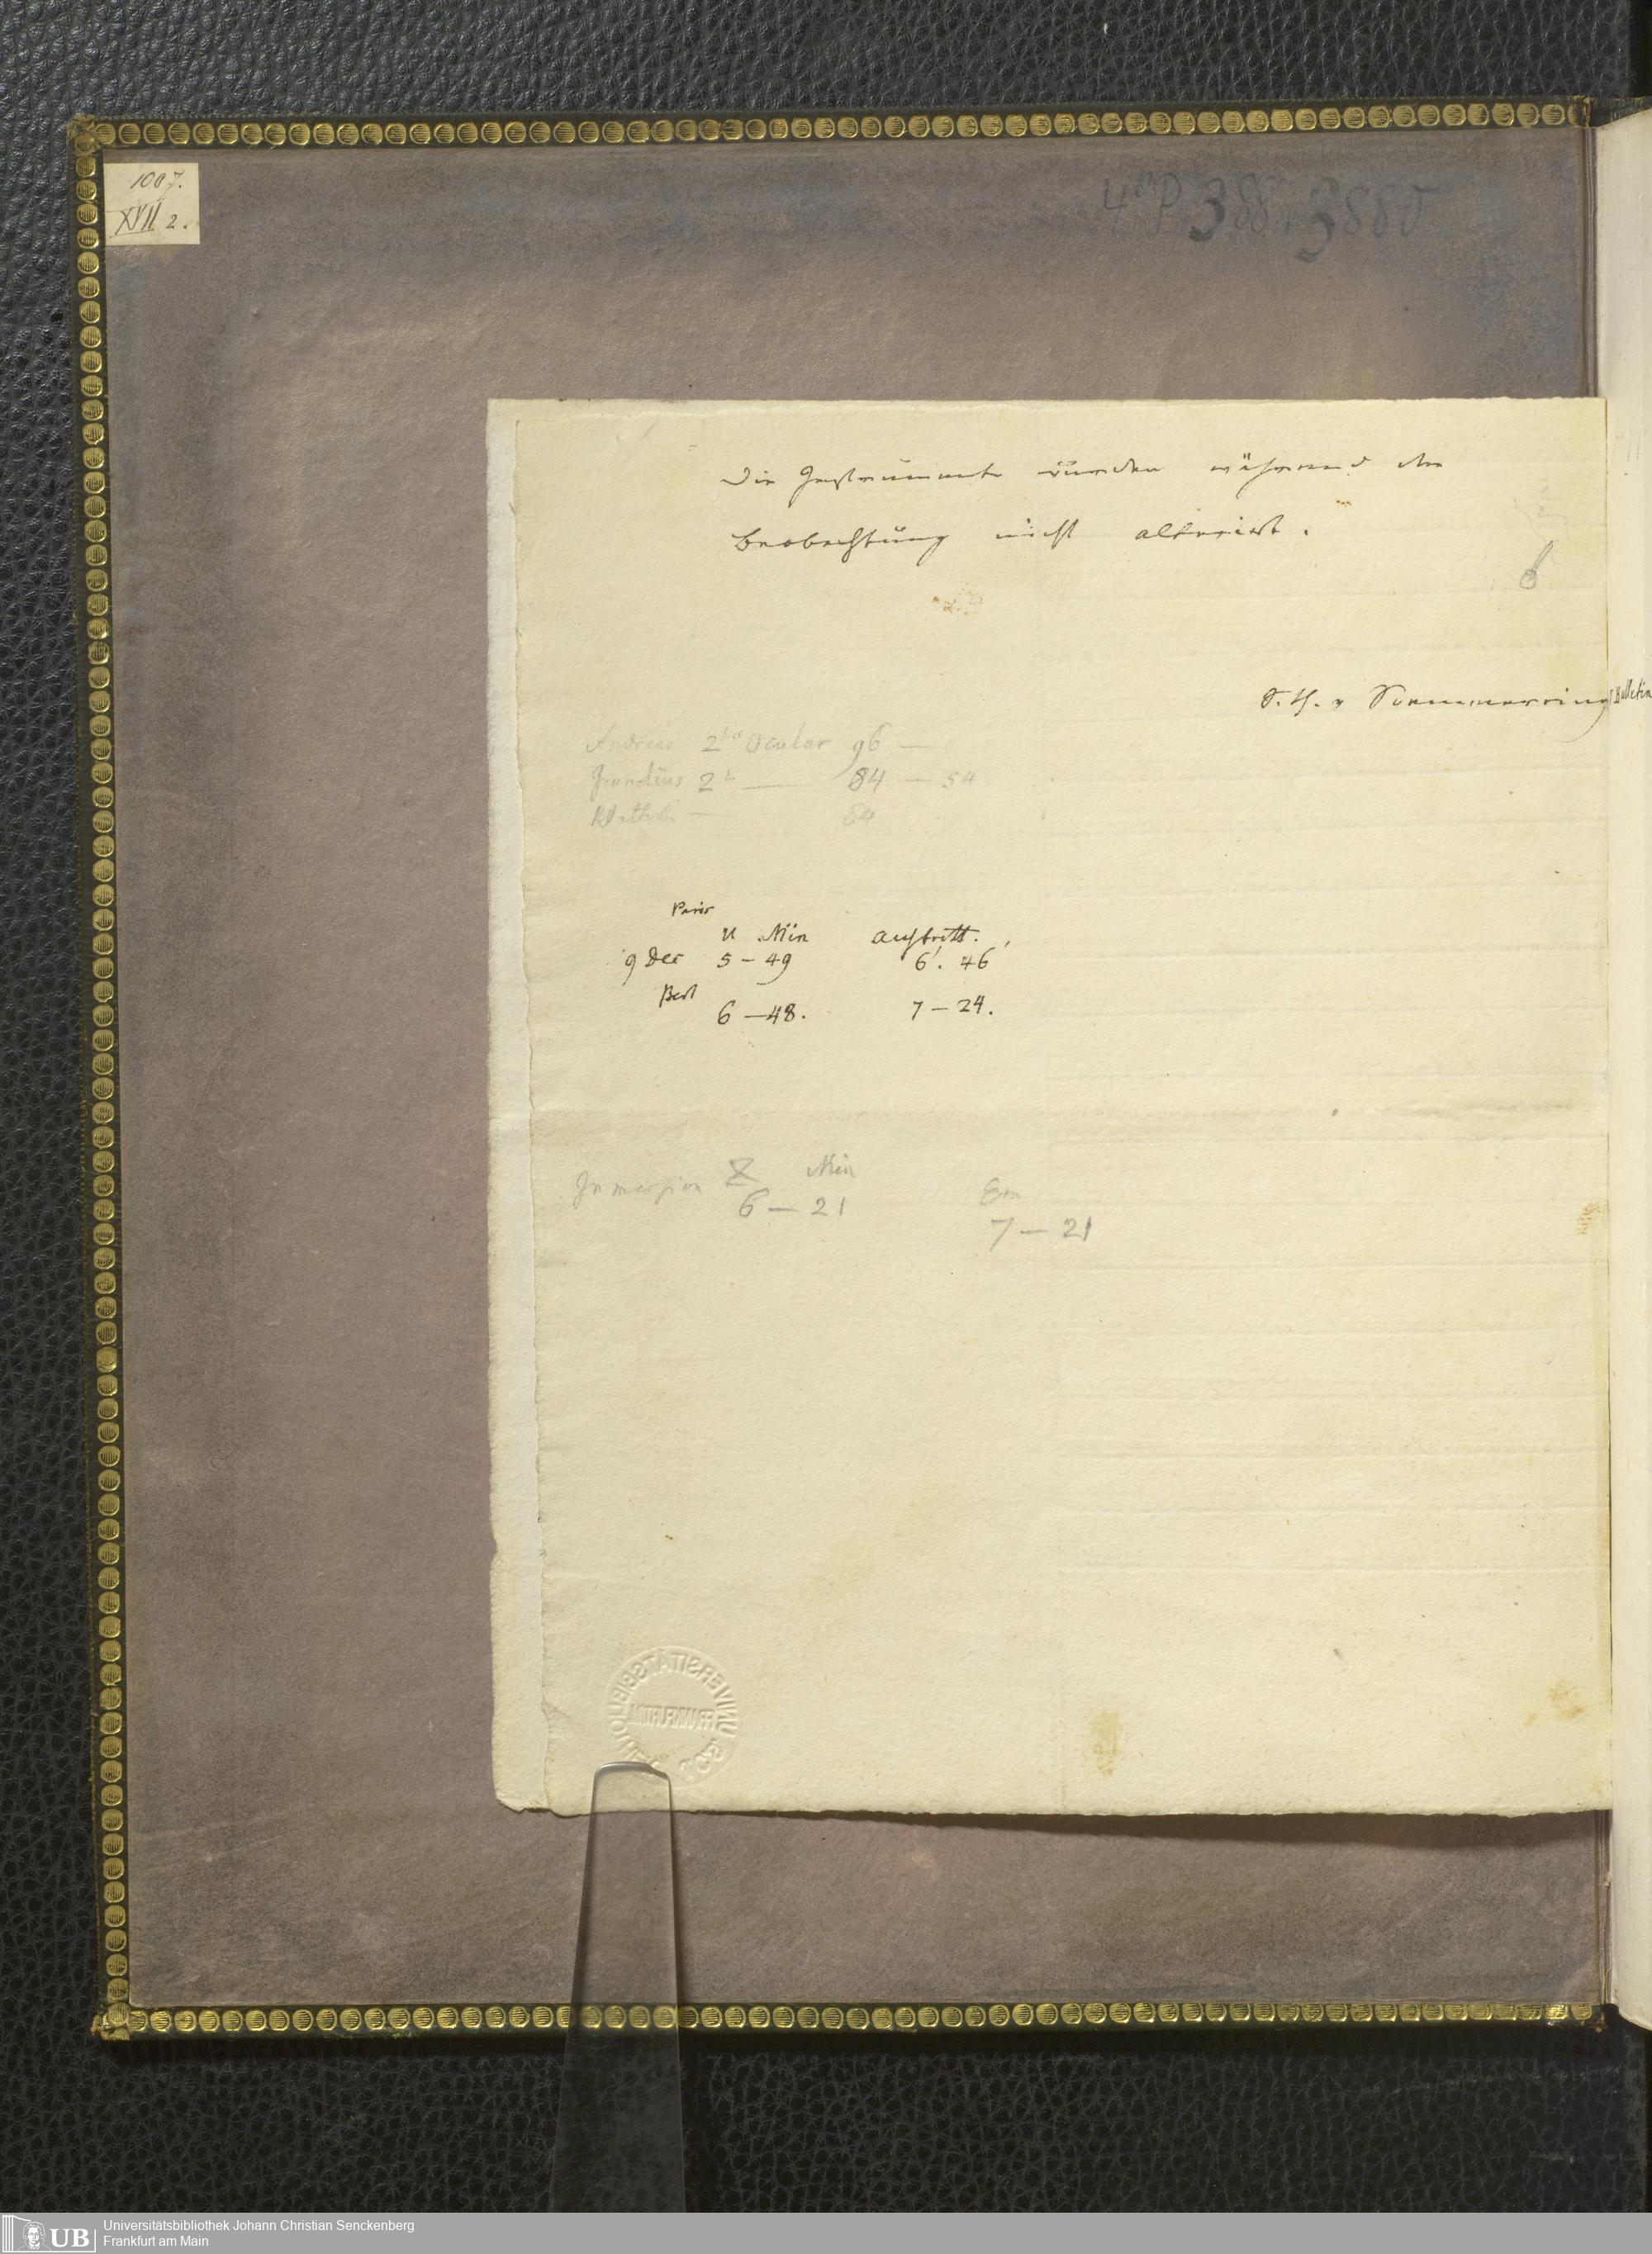 1007.
XVII 2.
4° P. 388. 3880
Die Instrumente wurden während der
Beobachtung nicht alterirt.
S. Th. v Soemmerring
Bulletin
Andreae 2tes Ocular 96 —
2t — 84 — 54
64
Paris
U Min Austritt.
9 Dec 5 – 49 6'. 46'
Berl
6 – 48. 7 – 24.
Immersion Min
6 – 21 Em
7 – 21
UNIVERSITÄTSBIBLIOTHEK
FRANKFURT M.
UB
Universitätsbibliothek Johann Christian Senckenberg
Frankfurt am Main